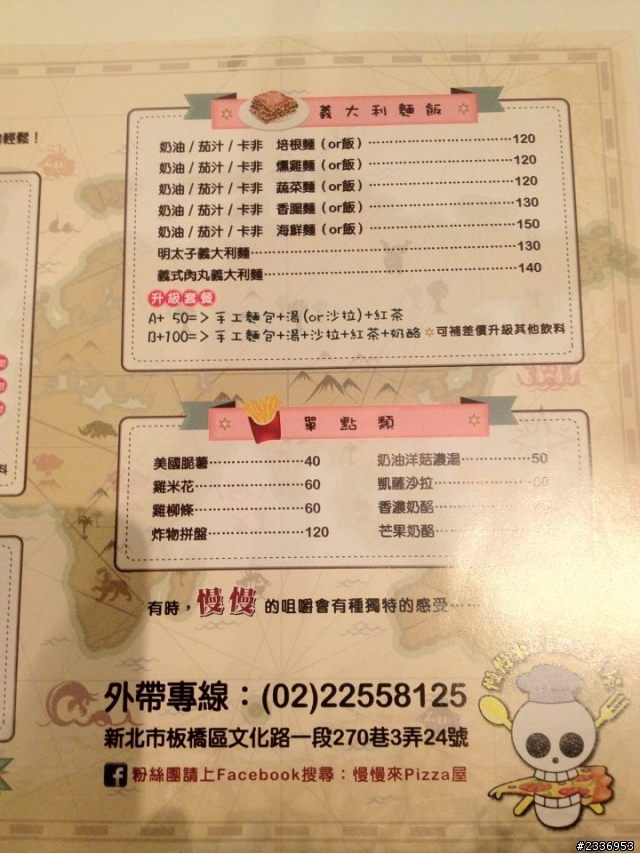 輕鬆！
義大利麵飯
奶油 / 茄汁 / 卡非 培根麵（or飯）⋯⋯⋯⋯120
奶油 / 茄汁 / 卡非 燻雞麵（or飯）⋯⋯⋯⋯120
奶油 / 茄汁 / 卡非 蔬菜麵（or飯）⋯⋯⋯⋯120
奶油 / 茄汁 / 卡非 香腸麵（or飯）⋯⋯⋯⋯130
奶油 / 茄汁 / 卡非 海鮮麵（or飯）⋯⋯⋯⋯150
明太子義大利麵⋯⋯⋯⋯130
義式肉丸義大利麵⋯⋯⋯⋯140
升級套餐
A+ 50=> 手工麵包+湯(or沙拉)+紅茶
B+100=> 手工麵包+湯+沙拉+紅茶+奶酪 ☆可補差價升級其他飲料
單點類
美國脆薯⋯⋯⋯⋯40
雞米花⋯⋯⋯⋯60
雞柳條⋯⋯⋯⋯60
炸物拼盤⋯⋯⋯⋯120
奶油洋菇濃湯⋯⋯⋯⋯50
凱薩沙拉⋯⋯⋯⋯
香濃奶酪⋯⋯⋯⋯
芒果奶酪⋯⋯⋯⋯
有時，慢慢的咀嚼會有種獨特的感受⋯⋯
外帶專線：(02)22558125
新北市板橋區文化路一段270巷3弄24號
粉絲團請上Facebook搜尋：慢慢來Pizza屋
#2336953